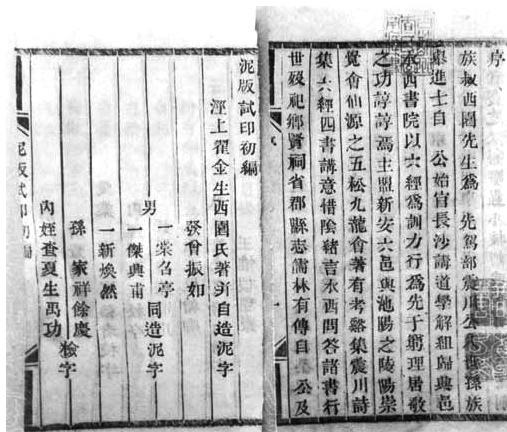 序
族叔西園先生爲 先駕部震川公八世孫族
舉進士自 公始官長沙講道學解組歸與邑
西書院以六經爲訓力行爲先于窮理居敬
之功諄諄焉主盟新安六邑與池陽之陵陽崇
覺會仙源之五松九龍會著有考谿集震川詩
集六經四書講意惜陰緒言永西問答諸書行
世歿祀鄉賢祠省郡縣志儒林有傳自 公及
泥版試印初編
涇上翟金生西園氏著并自造泥字
發曾振如
一棠召亭
男 同造泥字
一傑與甫
一新煥然
孫 家祥餘慶
檢字
內姪查夏生禹功
泥版試印初編